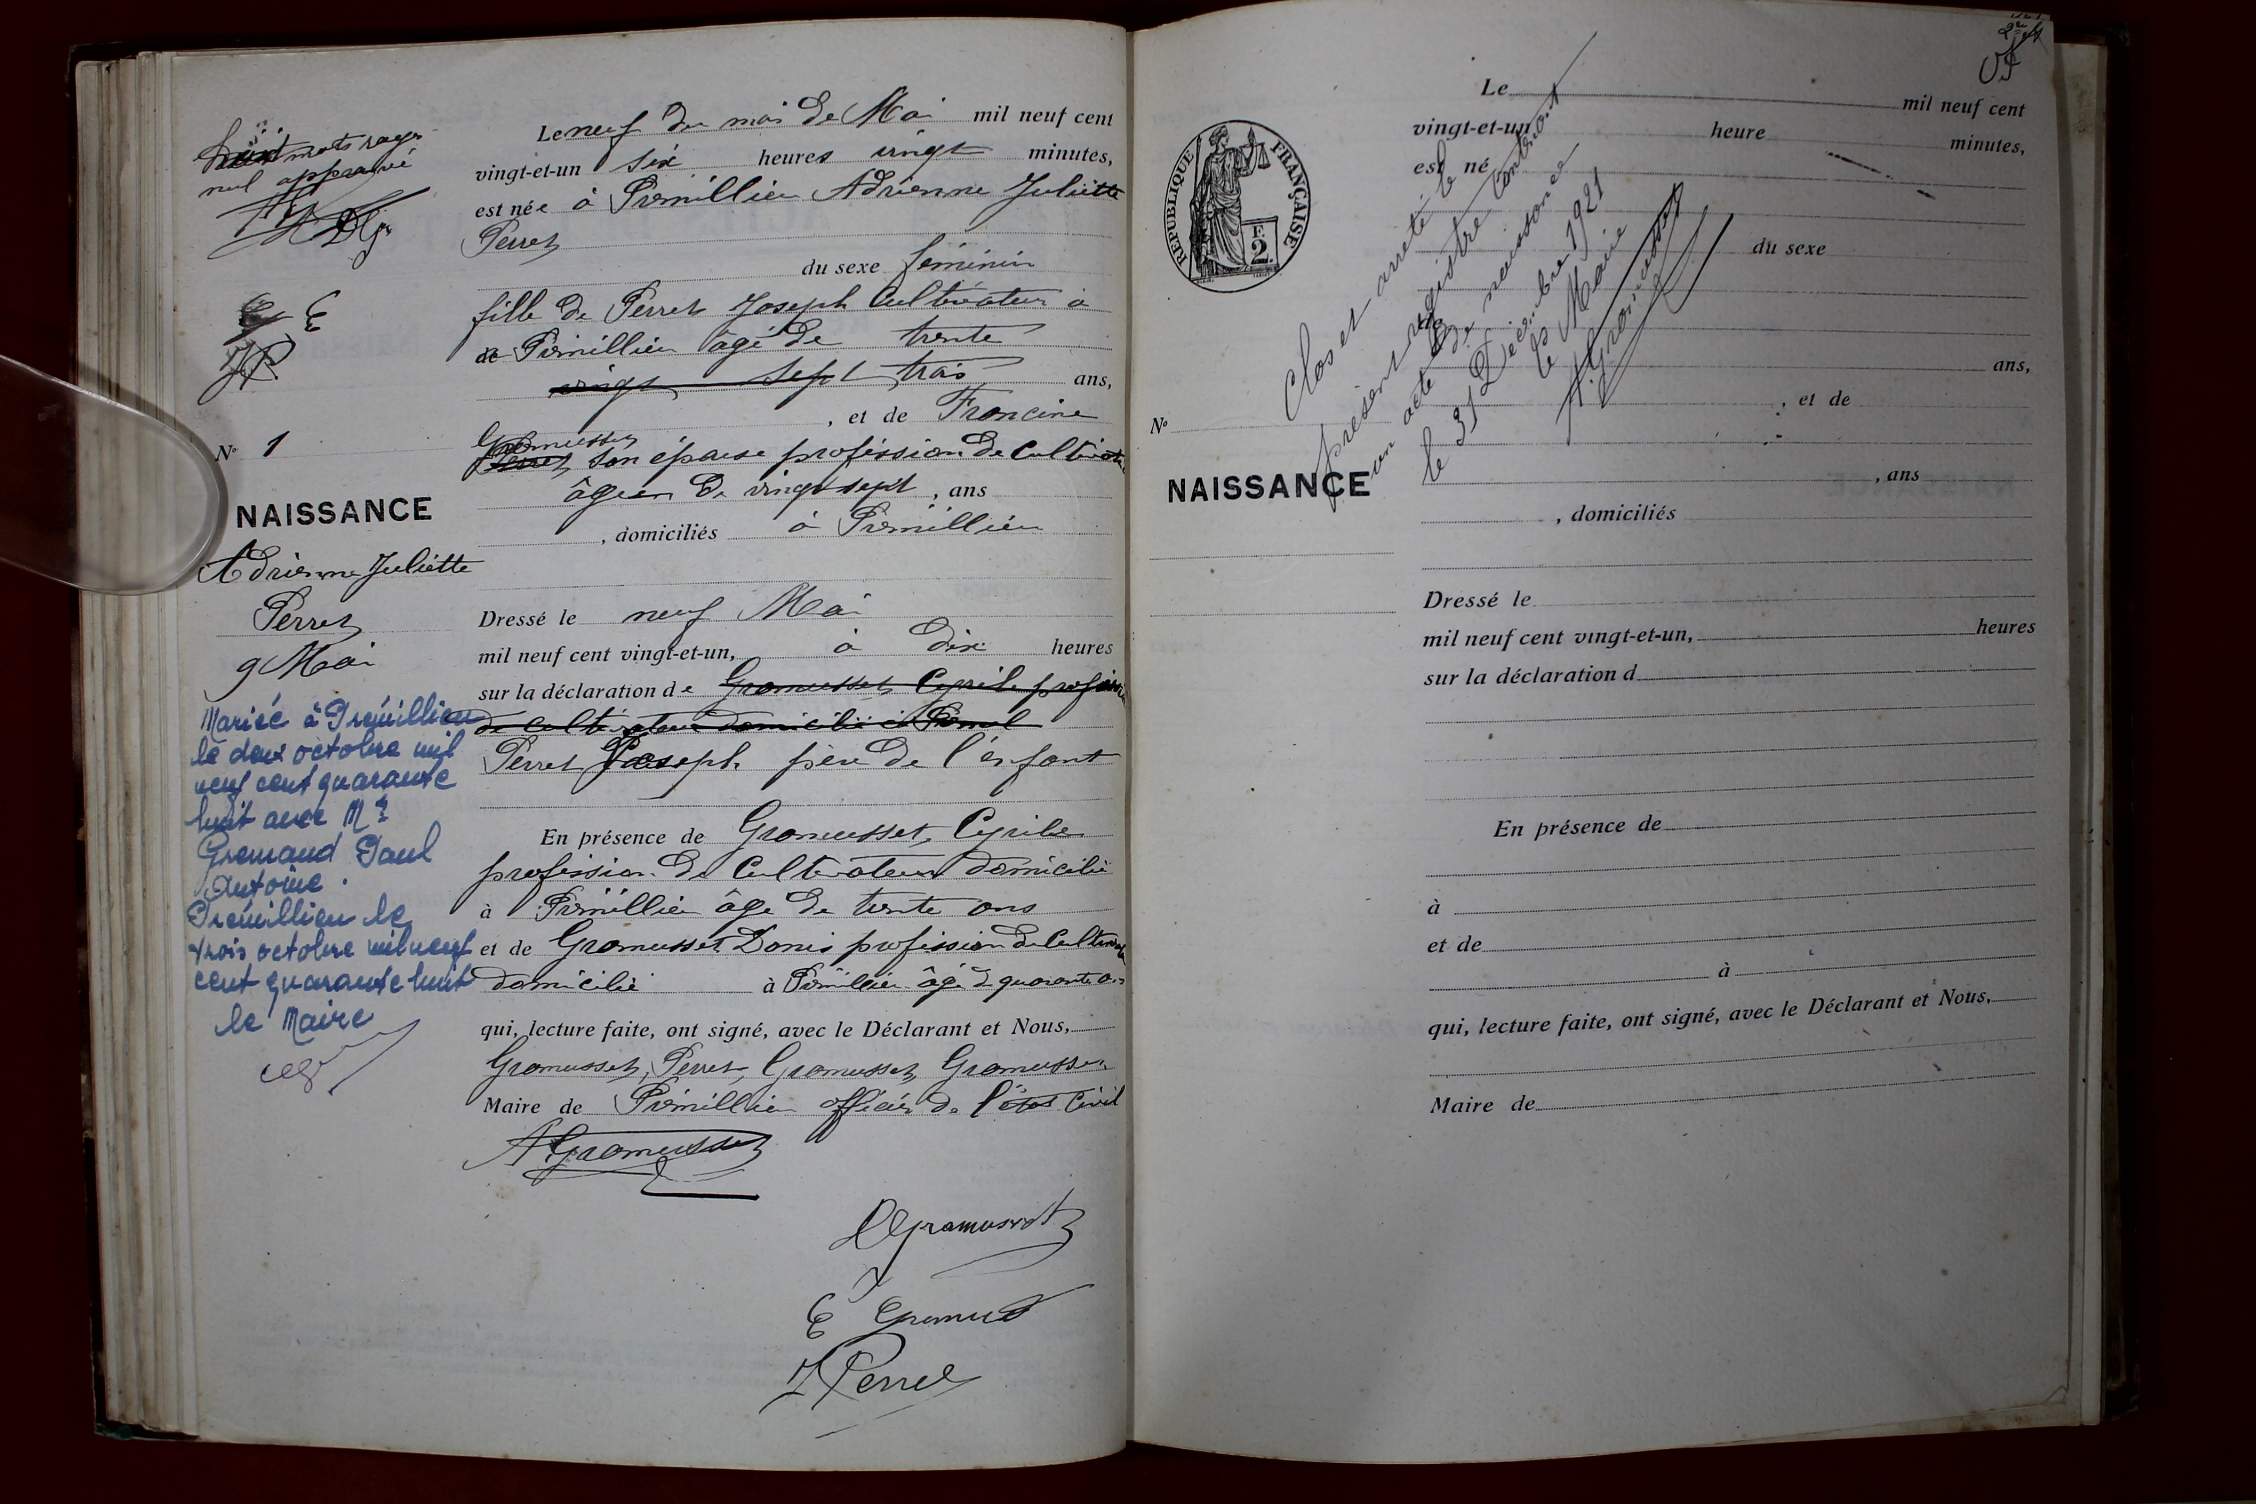 mots rayés
nul approuvé
E
JP
Le neuf du mois de Mai mil neuf cent
vingt-et-un six heures vingt minutes,
est née à Prémillieu Adrienne Juliette
Perret
du sexe féminin
fille de Perret Joseph Cultivateur à
de Prémillieu âgé de trente
vingt sept trois ans,
, et de Francine
Gromusset
Perret son épouse profession de Cultivat
âgée de vingt sept , ans
, domiciliés à Prémillieu
Nº 1
NAISSANCE
Adrienne Juliette
Perret
9 Mai
Mariée à Prémillieu
le deux octobre mil
neuf cent quarante
huit avec Mr
Gremaud Paul
Antoine.
Prémillieu le
trois octobre mil neuf
cent quarante huit
le Maire
Dressé le neuf Mai
mil neuf cent vingt-et-un, à dix heures
sur la déclaration de Gromusset Cyrile profession
de cultivateur domicilié à Prémil
Perret Joseph père de l'enfant
En présence de Gromusset, Cyrile
profession de Cultivateur domicilié
à Prémillieu âge de trente ans
et de Gromusset Denis profession de Cultivat
domicilié à Prémillieu âgé de quarante ans
qui, lecture faite, ont signé, avec le Déclarant et Nous,
Gromusset, Perret, Gromusset, Gromusset
Maire de Prémillieu officier de l'état Civil
A Gromusset
D Gromusset
C Gromusset
J Perret
Le mil neuf cent
vingt-et-un heure minutes,
est né
du sexe
RÉPUBLIQUE FRANÇAISE
F.
2
ans,
, et de
Nº
NAISSANCE
, ans
, domiciliés
Clos et arrêté le
présent registre contenant
un acte de naissance
le 31 Décembre 1921
le Maire
A Gromusset
Dressé le
mil neuf cent vingt-et-un, heures
sur la déclaration d
En présence de
à
et de
à
qui, lecture faite, ont signé, avec le Déclarant et Nous,
Maire de